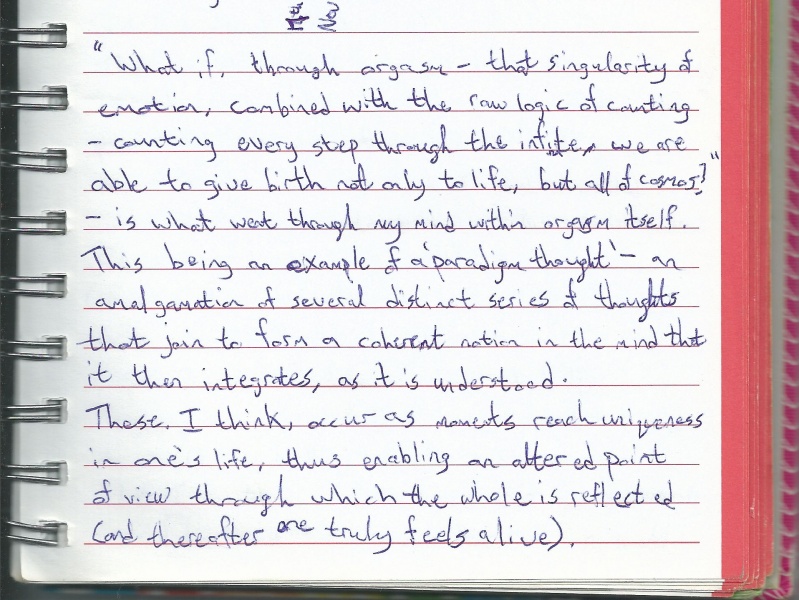 "What if, through orgasm – that singularity of
emotion, combined with the raw logic of counting
– counting every step through the infite, we are
able to give birth not only to life, but all of cosmos?"
– is what went through my mind within orgasm itself.
This being an example of a 'paradigm thought' – an
amalgamation of several distinct series of thoughts
that join to form a coherent notion in the mind that
it then integrates, as it is understood.
These, I think, occur as moments reach uniqueness
in one's life, thus enabling an altered point
of view through which the whole is reflected
(and thereafter one truly feels alive).